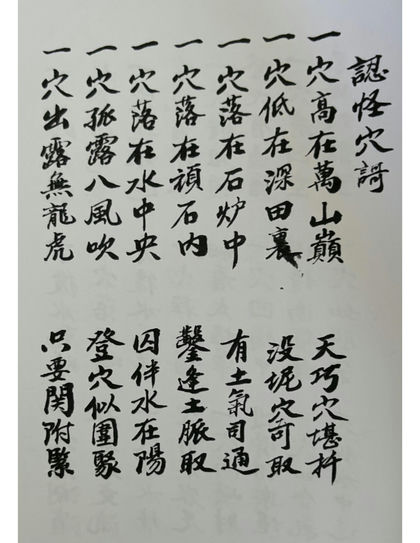 認怪穴謌
一穴高在萬山巔 天巧穴堪扦
一穴低在深田裏 没坭穴奇取
一穴落在石炉中 有土氣司通
一穴落在頑石内 鑿逢土脈取
一穴落在水中央 囚伴水在陽
一穴孤露八風吹 登穴似團聚
一穴出露無龍虎 只要関附緊